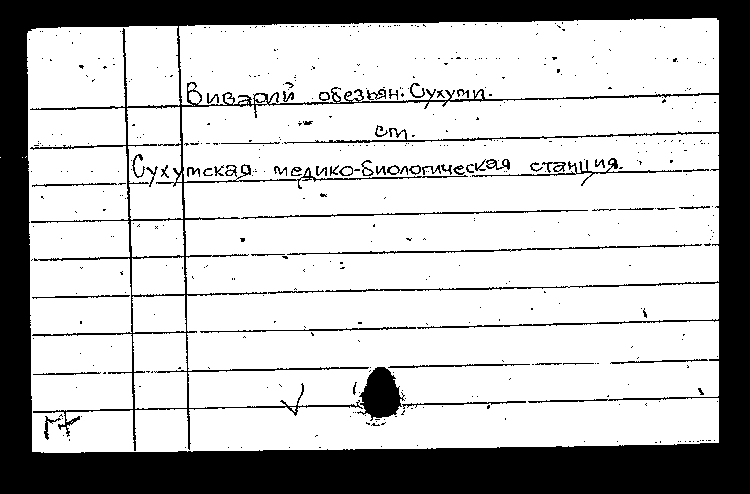 Виварий обезьян. Сухуми.
см.
Сухумская медико-биологическая станция.